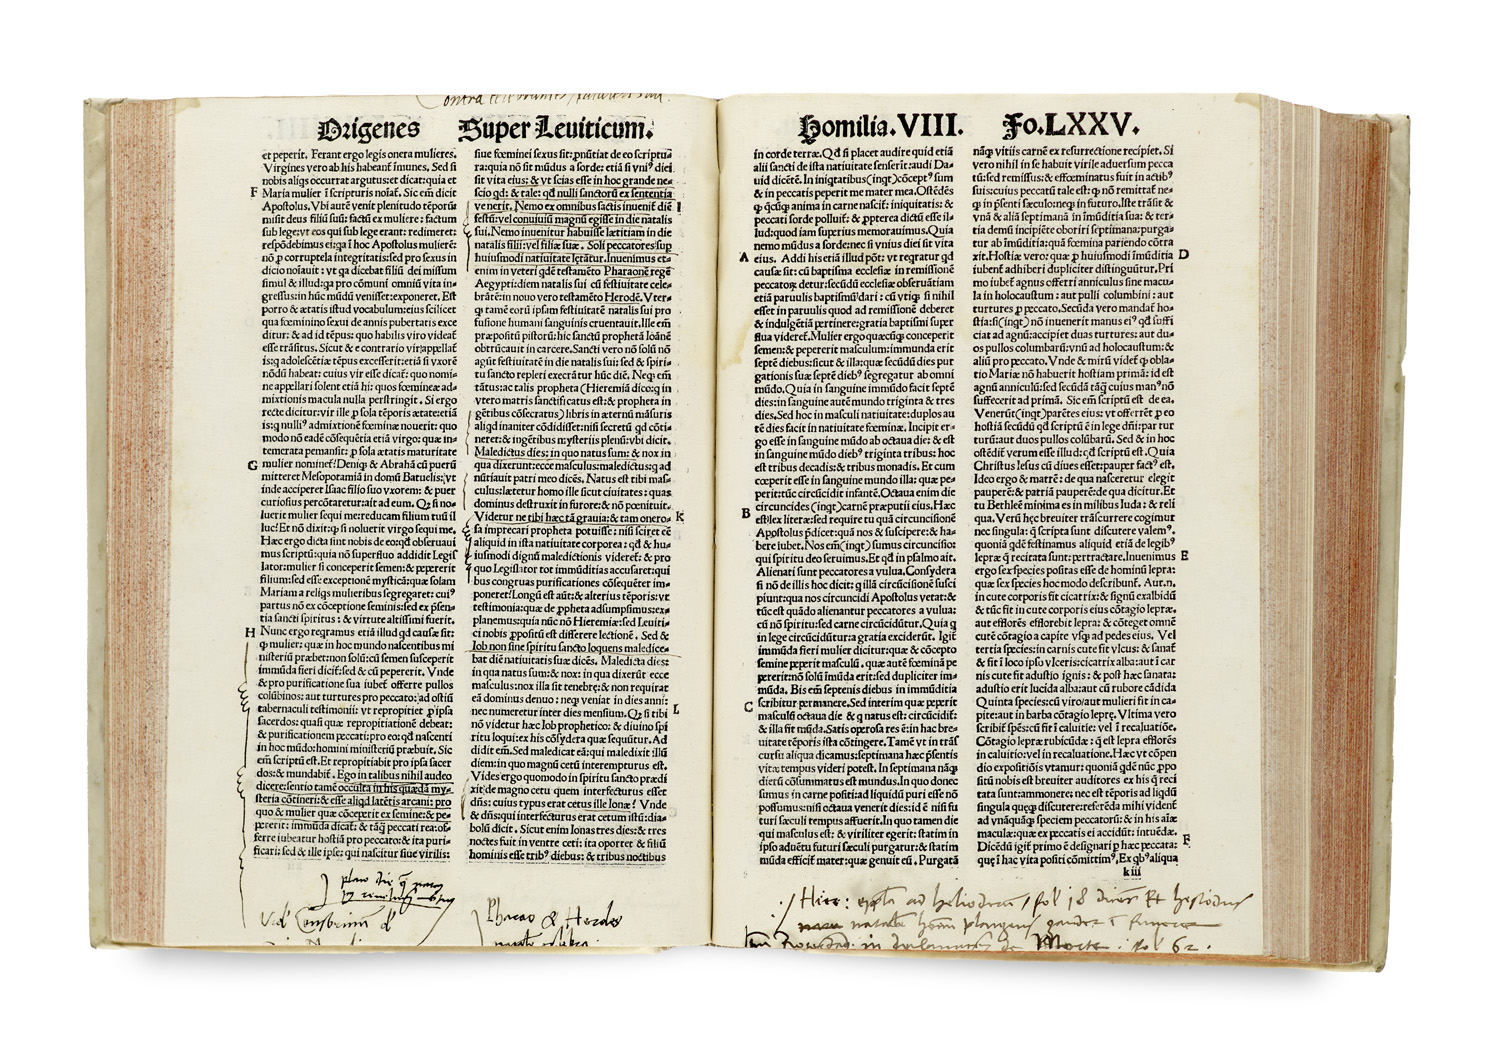 Contra celebrantes natales suu.
Origenes Super Leuiticum.
et peperit. Ferant ergo legis onera mulieres.
Virgines vero ab his habeant̃ inmunes. Sed si
nobis aliqs occurrat argutus:et dicat:quia et
F Maria mulier ĩ scripturis noiat̃. Sic em̃ dicit
Apostolus. Vbi autẽ venit plenitudo tẽporũ:
misit deus filiũ suũ: factũ ex muliere: factum
sub lege:vt eos qui sub lege erant: redimeret:
respõdebimus ei:qa ĩ hoc Apostolus mulierẽ:
nõ ꝑ corruptela integritatis:sed pro sexus in
dicio noĩauit: vt qa dicebat filiũ dei missum
simul & illud:qa pro cõmuni omniũ vita in-
gressus:in hũc mũdũ venisset:exponeret. Est
porro & ætatis istud vocabulum:eius scilicet
qua fœminino sexui de annis pubertatis exce
ditur: & ad id tẽpus: quo habilis viro videat̃
esse trãsitus. Sicut & e contrario vir:appellat̃
is:q adolescẽtiæ tẽpus excesserit:etiã si vxorẽ
nõdũ habeat: cuius vir esse dicat̃: quo nomi-
ne appellari solent etiã hi: quos fœmineæ ad-
mixtionis macula nulla perstringit. Si ergo
recte dicitur:vir ille ꝑ sola tẽporis ætate:etiã
is:q nulliꝰ admixtionẽ fœmineæ nouerit: quo
modo nõ eadẽ cõsequẽtia etiã virgo: quæ in-
temerata pemansit: ꝑ sola ætatis maturitate
G mulier nominet̃? Deniq; & Abrahã cũ puerũ
mitteret Mesopotamiã in domũ Batuelis:vt
inde acciperet Isaac filio suo vxorem: & puer
curiosius percõtaretur:ait ad eum. Qꝫ si no-
luerit mulier sequi me:reducam filium tuũ il
luc? Et nõ dixit:q̃ si noluerit virgo sequi me.
Hæc ergo dicta sint nobis de eo:qd̃ obseruaui
mus scriptũ:quia nõ superfluo addidit Legis
lator:mulier si conceperit semen:& pepererit
filium:sed esse exceptionẽ mysticã:quæ solam
Mariam a reliqis mulieribus segregaret: cuiꝰ
partus nõ ex cõceptione seminis:sed ex p̃sen-
tia sancti spiritus : & virtute altissimi fuerit.
H Nunc ergo reqramus etiã illud qd causæ sit:
q̃ mulier: quæ in hoc mundo nascentibus mi
nisteriũ præbet:non solũ:cũ semen susceperit
immũda fieri dicit̃:sed & cũ pepererit. Vnde
& pro purificatione sua iubet̃ offerre pullos
colũbinos: aut turtures pro peccato:ad ostiũ
tabernaculi testimonii: vt repropitiet ꝑ ipsa
sacerdos: quasi quæ repropitiationẽ debeat:
& purificationem peccati:pro eo:qd nascenti
in hoc mũdo:homini ministeriũ præbuit. Sic
em̃ scriptũ est. Et repropitiabit pro ipsa sacer
dos:& mundabit̃. Ego in talibus nihil audeo
dicere:sentio tamẽ occulta in his quædã my-
steria cõtineri:& esse aliqd latẽtis arcani: pro
quo & mulier quæ cõceperit ex semine:& pe-
pererit: immũda dicat̃: & tãq̃ peccati rea:of-
ferre iubeatur hostiã pro peccato:& ita puri-
ficari:sed & ille ipse: qui nascitur siue virilis:
siue fœminei sexus sit: ꝓnũtiat de eo scriptu-
ra:quia nõ sit mũdus a sorde: etiã si vniꝰ diei
sit vita eius: & vt scias esse in hoc grande ne-
scio qd: & tale: qd nulli sanctorũ ex sententia
venerit. Nemo ex omnibus sactis inuenit̃ diẽ I
festũ:vel conuiuiũ magnũ egisse in die natalis
sui. Nemo inuenitur habuisse lætitiam in die
natalis filii: vel filiæ suæ. Soli peccatores:sup
huiusmodi natiuitate lætãtur. Inuenimus et-
enim in veteri qdẽ testamẽto Pharaonẽ regẽ
Aegypti:diem natalis sui cũ festiuitate cele-
brãte:in nouo vero testamẽto Herodẽ. Vter-
q; tamẽ eorũ ipsam festiuitatẽ natalis sui pro
fusione humani sanguinis cruentauit. Ille em̃
præpositũ pistorũ: hic sanctũ prophetã Ioãnẽ
obtrũcauit in carcere. Sancti vero nõ solũ nõ
agũt festiuitatẽ in die natalis sui: sed & spiri-
tu sancto repleti execrãtur hũc diẽ. Neq; em̃
tãtus:ac talis propheta (Hieremiã dico:q in
vetro matris sanctificatus est:& propheta in
gẽtibus cõsecratus) libris in æternũ mãsuris
aliqd inaniter cõdidisset:nisi secretũ qd cõti-
neret:& ingẽtibus mysteriis plenũ:vbi dicit.
Maledictus dies: in quo natus sum: & nox in
qua dixerunt:ecce masculus:maledictus:q ad
nũtiauit patri meo dicẽs. Natus est tibi mas-
culus:lætetur homo ille sicut ciuitates : quas
dominus destruxit in furore:& nõ pœnituit.
Videtur ne tibi hæc tã grauia: & tam onero- K
sa imprecari propheta potuisse: nisi sciret eẽ
aliquid in ista natiuitate corporea: qd & hu-
iusmodi dignũ maledictionis videret̃: & pro
quo Legislator tot immũditias accusaret:qui
bus congruas purificationes cõsequẽter im-
poneret? Longũ est aũt: & alterius tẽporis:vt
testimonia:quæ de ꝓpheta adsumpsimus:ex-
planemus:quia nũc nõ Hieremiæ:sed Leuiti-
ci nobis ꝓpositũ est disserere lectionẽ. Sed &
Iob non sine spiritu sancto loquens maledice-
bat diẽ natiuitatis suæ dicẽs. Maledicta dies:
in qua natus sum:& nox: in qua dixerũt ecce
masculus:nox illa sit tenebrę:& non requirat
eã dominus denuo: neq; veniat in dies anni:
nec numeretur inter dies mensium. Qꝫ si tibi L
nõ videtur hæc Iob prophetico: & diuino spi
ritu loqui:ex his cõsydera quæ sequũtur. Ad
didit em̃. Sed maledicat eã:qui maledixit illũ
diem: in quo magnũ cetũ interempturus est.
Vides ergo quomodo in spiritu sancto prædi
xit:de magno cetu quem interfecturus esset
dñs: cuius typus erat cetus ille Ionæ? Vnde
& dñs:qui interfecturus erat cetum istũ:dia-
bolũ dicit. Sicut enim Ionas tres dies:& tres
noctes fuit in ventre ceti: ita oportet & filiũ
hominis esse tribꝰ diebus: & tribus noctibus
Pharao & Herodes
Homilia.VIII. Fo.LXXV.
in corde terræ. Qd si placet audire quid etiã
alii sancti de ista natiuitate senserint: audi Da-
uid dicẽtẽ. In iniqtatibus(inqt)cõceptꝰ sum
& in peccatis peperit me mater mea. Ostẽdẽs
q̃ qcũq; anima in carne nascit̃: iniquitatis: &
peccati sorde polluit̃: & ꝓpterea dictũ esse il-
lud:quod iam superius memorauimus. Quia
nemo mũdus a sorde:nec si vnius diei sit vita
A eius. Addi his etiã illud põt: vt reqratur qd
causæ sit: cũ baptisma ecclesiæ in remissionẽ
peccatoꝝ detur:secũdũ ecclesiæ obseruãtiam
etiã paruulis baptismũ dari : cũ vtiq; si nihil
esset in paruulis quod ad remissionẽ deberet
& indulgẽtiã pertinere:gratia baptismi super
flua videret̃. Mulier ergo quæcũq; conceperit
semen:& pepererit masculum:immunda erit
septẽ diebus:sicut & illa:quæ secũdũ dies pur
gationis suæ septẽ diebꝰ segregatur ab omni
mũdo. Quia in sanguine immũdo facit septẽ
dies:in sanguine autẽ mundo triginta & tres
dies. Sed hoc in masculi natiuitate:duplos au
tẽ dies facit in natiuitate fœminæ. Incipit er-
go esse in sanguine mũdo ab octaua die: & est
in sanguine mũdo diebꝰ triginta tribus: hoc
est tribus decadis:& tribus monadis. Et cum
cœperit esse in sanguine mundo illa: quæ pe-
perit:tũc circũcidit infantẽ. Octaua enim die
circuncides (inqt)carnẽ præputii eius. Hæc
B est lex literæ:sed require tu quã circuncisionẽ
Apostolus p̃dicet: quã nos & suscipere: & ha-
bere iubet. Nos em̃(inqt) sumus circuncisio:
qui spiritu deo seruimus. Et qd in psalmo ait.
Alienati sunt peccatores a vulua. Consydera
si nõ de illis hoc dicit: q illã circũcisionẽ susci
piunt:qua nos circuncidi Apostolus vetat:&
tũc est quãdo alienantur peccatores a vulua:
cũ nõ spiritu:sed carne circũcidũtur. Quia q
in lege circũcidũtur:a gratia exciderũt. Igit̃
immũda fieri mulier dicitur:quæ & cõcepto
semine peperit masculũ. quæ autẽ fœminã pe
pererit:nõ solũ imũda erit:sed dupliciter im-
mũda. Bis em̃ septenis diebus in immũditia
C scribitur permanere. Sed interim quæ peperit
masculũ octaua die & q natus est: circũcidit̃:
& illa fit mũda. Satis operosa res ẽ:in hac bre-
uitate tẽporis ista cõtingere. Tamẽ vt in trãs
cursu aliqua dicamus:septimana hæc p̃sentis
vitæ tempus videri potest. In septimana nãq;
dierũ cõsummatus est mundus. In quo donec
sumus in carne positi:ad liquidũ puri esse nõ
possumus:nisi octaua venerit dies:id ẽ nisi fu
turi sæculi tempus affuerit. In quo tamen die
qui masculus est: & viriliter egerit: statim in
ipso aduẽtu futuri sæculi purgatur:& statim
mũda efficit̃ mater:quæ genuit eũ. Purgatã
nãq; vitiis carnẽ ex resurrectione recipiet. Si
vero nihil in se habuit virile aduersum pecca
tũ:sed remissus: & effœminatus fuit in actibꝰ
suis:cuius peccatũ tale est: q̃ nõ remittat̃ ne-
q; in p̃senti sæculo:neq; in futuro. Iste trãsit &
vnã & aliã septimanã in imũditia sua: & ter-
tia demũ incipiẽte oboriri septimana: purga-
tur ab imũditia:quã fœmina pariendo cõtra
xit. Hostiæ vero: quæ ꝓ huiusmodi imũditia D
iubent̃ adhiberi dupliciter distinguũtur. Pri
mo iubet̃ agnus offerri anniculus sine macu-
la in holocaustum : aut pulli columbini : aut
turtures ꝓ peccato. Secũda vero mandat̃ ho-
stia:si(inqt) nõ inuenerit manus eiꝰ qd suffi
ciat ad agnũ:accipiet duas turtures: aut du-
os pullos columbarũ:vnũ ad holocaustum:&
aliũ pro peccato. Vnde & mirũ videt̃ q̃ obla-
tio Mariæ nõ habuerit hostiam primã: id est
agnũ anniculũ:sed secũdã tãq̃ cuius manꝰ nõ
sufficerit ad primã. Sic em̃ scriptũ est de ea.
Venerũt(inqt)parẽtes eius: vt offerrẽt ꝓ eo
hostiã secũdũ qd scriptũ ẽ in lege dñi: par tur
turũ:aut duos pullos colũbarũ. Sed & in hoc
ostẽdit̃ verum esse illud: qd scriptũ est. Quia
Christus Iesus cũ diues esset:pauper factꝰ est.
Ideo ergo & matrẽ: de qua nasceretur elegit
pauperẽ:& patriã pauperẽ:de qua dicitur. Et
tu Bethleẽ minima es in milibus Iuda: & reli
qua. Verũ hęc breuiter trãscurrere cogimur
nec singula: q̃ scripta sunt discutere valemꝰ.
quoniã qd̃ festinamus aliquid etiã de legibꝰ
lepræ:q̃ recitata sunt: pertractare. Inuenimus E
ergo sex species positas esse de hominũ lepra:
quæ sex species hoc modo describunt̃. Aut.n.
in cute corporis fit cicatrix:& signũ exalbidũ
& tũc fit in cute corporis eius cõtagio lepræ.
aut efflorẽs efflorebit lepra: & cõteget omnẽ
cutẽ cõtagiõ a capite vsq; ad pedes eius. Vel
tertia species:in carnis cute fit vlcus: & sanat̃
& fit ĩ loco ipso vlceris:cicatrix alba:aut ĩ car
nis cute fit adustio ignis : & post hæc sanata:
adustio erit lucida alba:aut cũ rubore cãdida
Quinta species:cũ viro:aut mulieri fit in ca-
pite:aut in barba cõtagio leprę. Vltima vero
scribit̃ spẽs:cũ fit ĩ caluitie: vel ĩ recaluatiõe.
Cõtagio lepræ rubicũdæ: q̃ est lepra efflorẽs
in caluitie:vel in recaluatione. Hæc vt cõpen
dio expositiõis vtamur: quoniã qdẽ nũc ꝓpo
sitũ nobis est breuiter auditores ex his q̃ reci
tata sunt:ammonere: nec est tẽporis ad liqdũ
singula quęq; discutere:referẽda mihi videnT̃
ad vnãquãq; speciem peccatorũ:& in his aliæ
maculæ:quæ ex peccatis ei accidũt: intuẽdæ.
Dicẽdũ igit̃ primo ẽ designari p̃ hæc peccata: F
quę ĩ hac vita positi cõmittimꝰ. Ex qbꝰ aliqua
kiii